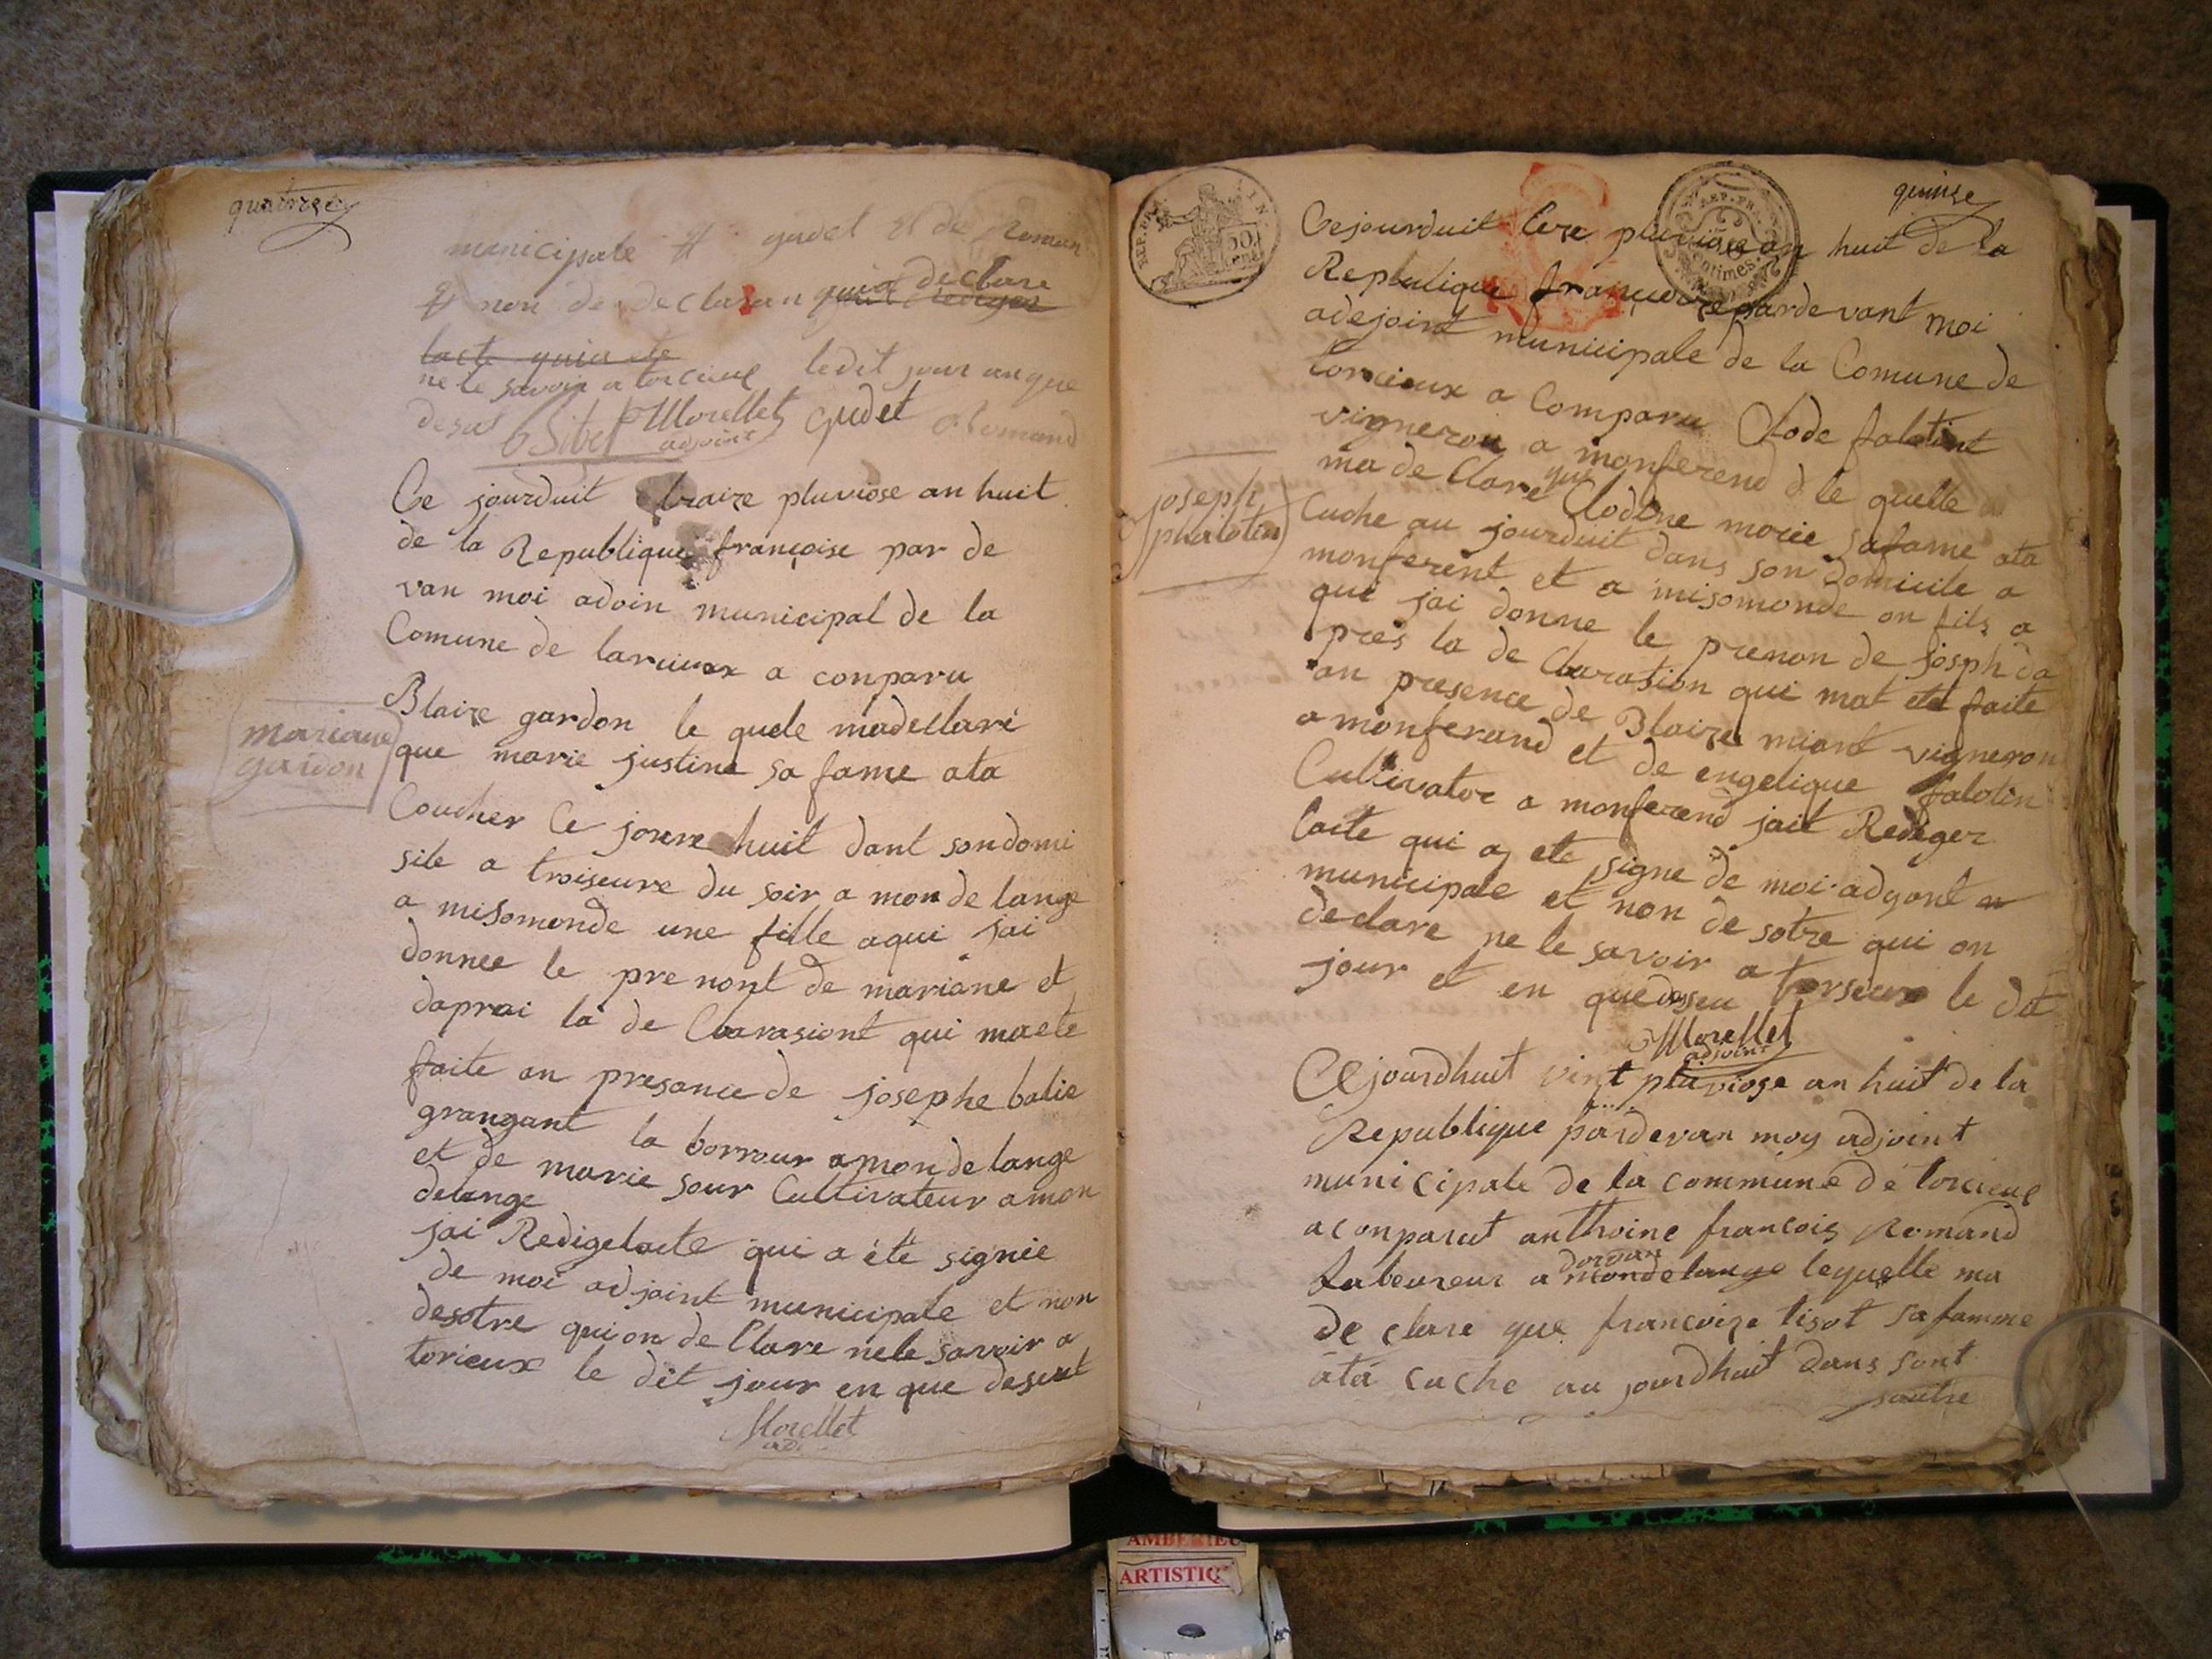 quatorze
municipale # gudet et de Roman
et non de declaran quia declare
lacte quia ete
ne le savoir a torcieux ledit jour anque
desu Sibet Morellet gudet Romand
adjoint
Ce jourduit traize pluviose an huit
de la Republique françoise par de
van moi adoin municipal de la
Comune de larcieux a conparu
Blaize gardon le quele madellaré
mariane
gardon
que marie justine sa fame ata
Coucher Ce joure huit dant sondomi
sile a troiseure du soir a mon de lange
a misomonde une fille aqui jai
donnee le pre nont de mariane et
daprai la de Clarasiont qui maete
faite an presance de josephe balie
grangant la borrour amondelange
et de marie sour Cultivateur amon
delange
jai Redigelacte qui a été signée
de moi adjoint municipale et non
desotre quion de Clare nele savoir a
torieux le dit jour en que desut
Morellet
adj
REP. FRA.
50
cent
REP. FRA.
centimes
quinse
Cejourduit pluviose an huit de la
Repbulique françoize pardevant moi
adejoint municipale de la Comune de
torcieux a Comparu Clode falotint
vigneron a monferend le quelle
ma de Clare que Clodine morie safame ata
joseph
phalotin
Cuche au jourduit dans son domicile a
monferent et a misomonde on fils a
qui jai donne le prenon de josph da
pres la de Clarasion qui mat ete faite
an presence de Blaize miant vigneron
a monferand et de engelique falotin
Cultivator a monferend jait Rediger
lacte qui a ete signe de moi adyont
municipale et non de sotre qui on
declare ne le savoir a torseux le dit
jour et en que desseu
Morellet
adjoint
Cejourdhuit vint pluviose an huit de la
Republique pardevan moy adjoint
municipale de la commune de torcieux
aconparut anthoine francois Romand
labeureur a mondelange dordan lequelle ma
de clare que francoize tisot safamme
ata cuche au jourdhuit dans sont
sautre
AMBERIEU
ARTISTIQ